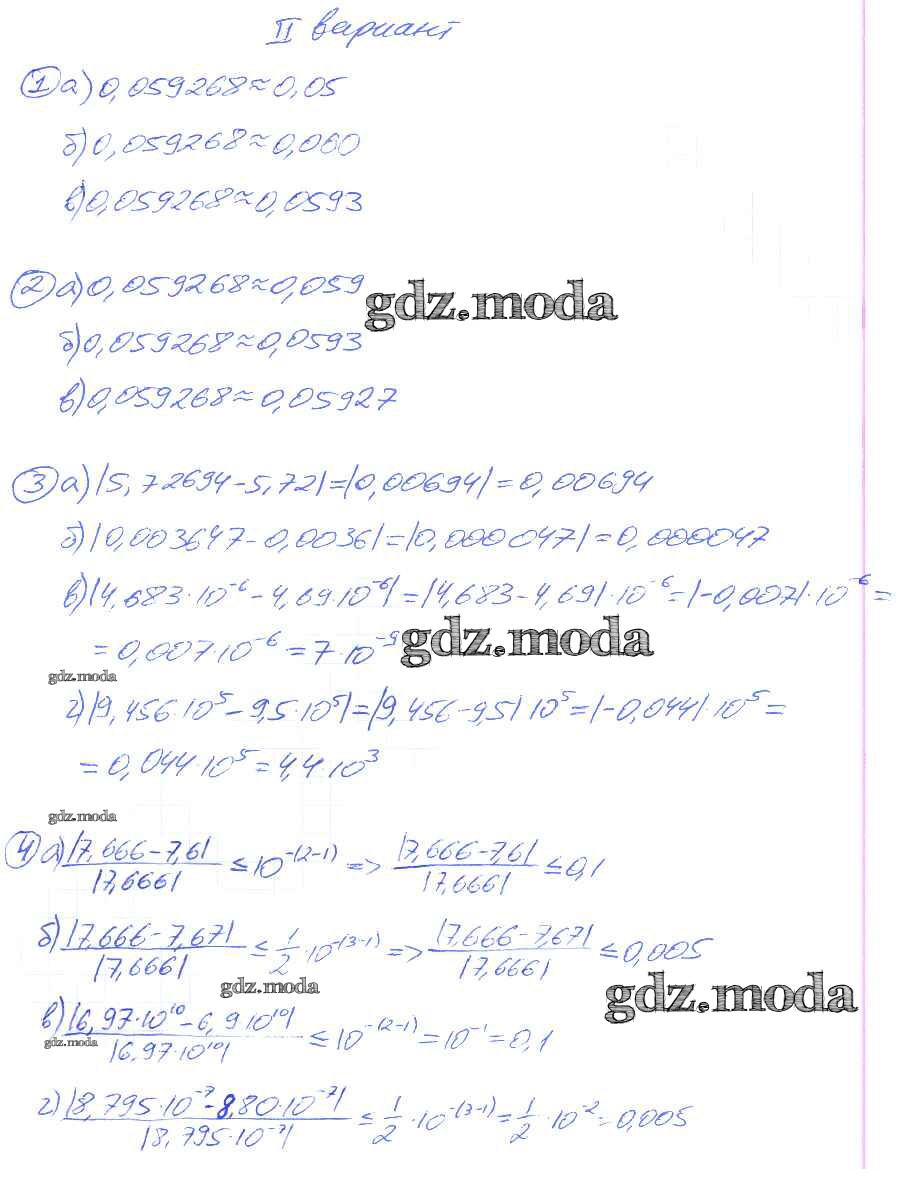 II вариант
1 а) 0,059268≈0,05
б) 0,059268≈0,060
в) 0,059268≈0,0593
2 а) 0,059268≈0,059
gdz.moda
б) 0,059268≈0,0593
в) 0,059268≈0,05927
3 а) |5,72694-5,72|=|0,00694|=0,00694
б) |0,003647-0,0036|=|0,000047|=0,000047
в) |4,683·10⁻⁶-4,69·10⁻⁶|=|4,683-4,69|·10⁻⁶=|-0,007|·10⁻⁶=
=0,007·10⁻⁶=7·10⁻⁹
gdz.moda
gdz.moda
г) |9,456·10⁵-9,5·10⁵|=|9,456-9,5|10⁵=|-0,044|·10⁵=
=0,044·10⁵=4,4·10³
gdz.moda
4 а) |7,666-7,6|/|7,666| ≤10⁻⁽²⁻¹⁾ => |7,666-7,6|/|7,666| ≤0,1
б) |7,666-7,67|/|7,666| ≤1/2·10⁻⁽³⁻¹⁾ => |7,666-7,67|/|7,666| ≤0,005
gdz.moda
gdz.moda
в) |6,97·10¹⁰-6,9·10¹⁰|/|6,97·10¹⁰| ≤10⁻⁽²⁻¹⁾=10⁻¹=0,1
gdz.moda
г) |8,795·10⁻⁷-8,80·10⁻⁷|/|8,795·10⁻⁷| ≤1/2·10⁻⁽³⁻¹⁾=1/2·10⁻²=0,005